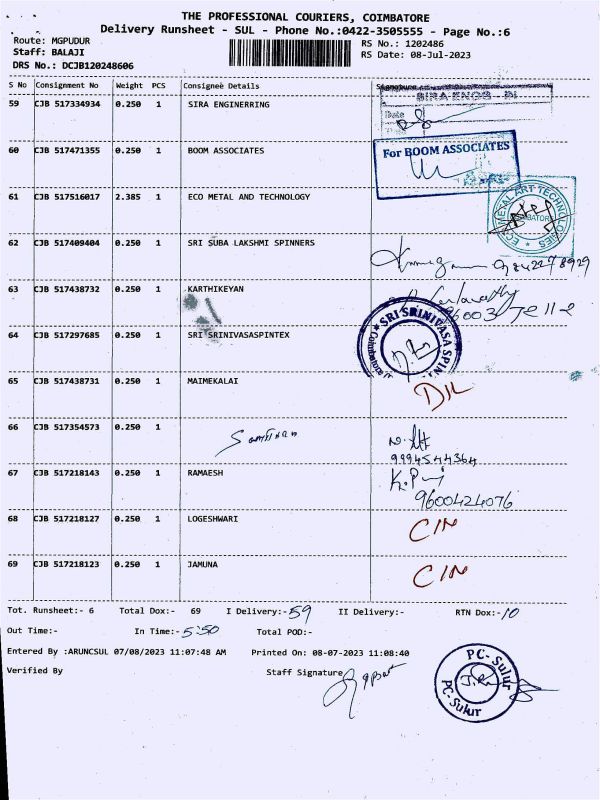 THE PROFESSIONAL COURIERS, COIMBATORE
Delivery Runsheet - SUL - Phone No.:0422-3505555 - Page No.:6
Route: MGPUDUR RS No.: 1202486
Staff: BALAJI RS Date: 08-Jul-2023
DRS No.: DCJB120248606
S No Consignment No Weight PCS Consignee Details Signature
59 CJB 517334934 0.250 1 SIRA ENGINERRING
Date
60 CJB 517471355 0.250 1 BOOM ASSOCIATES For BOOM ASSOCIATES
61 CJB 517516017 2.385 1 ECO METAL AND TECHNOLOGY
62 CJB 517409404 0.250 1 SRI SUBA LAKSHMI SPINNERS
63 CJB 517438732 0.250 1 KARTHIKEYAN
64 CJB 517297685 0.250 1 SRI SRINIVASASPINTEX SRI SRINIVASA SPIN
65 CJB 517438731 0.250 1 MAIMEKALAI DIL
66 CJB 517354573 0.250 1
9994544364
67 CJB 517218143 0.250 1 RAMAESH
9600424076
68 CJB 517218127 0.250 1 LOGESHWARI CIN
69 CJB 517218123 0.250 1 JAMUNA CIN
Tot. Runsheet:- 6 Total Dox:- 69 I Delivery:- 59 II Delivery:- RTN Dox:- 10
Out Time:- In Time:- 5:50 Total POD:-
Entered By :ARUNCSUL 07/08/2023 11:07:48 AM Printed On: 08-07-2023 11:08:40
Verified By Staff Signature
PC-Sulur
PC-Sulur